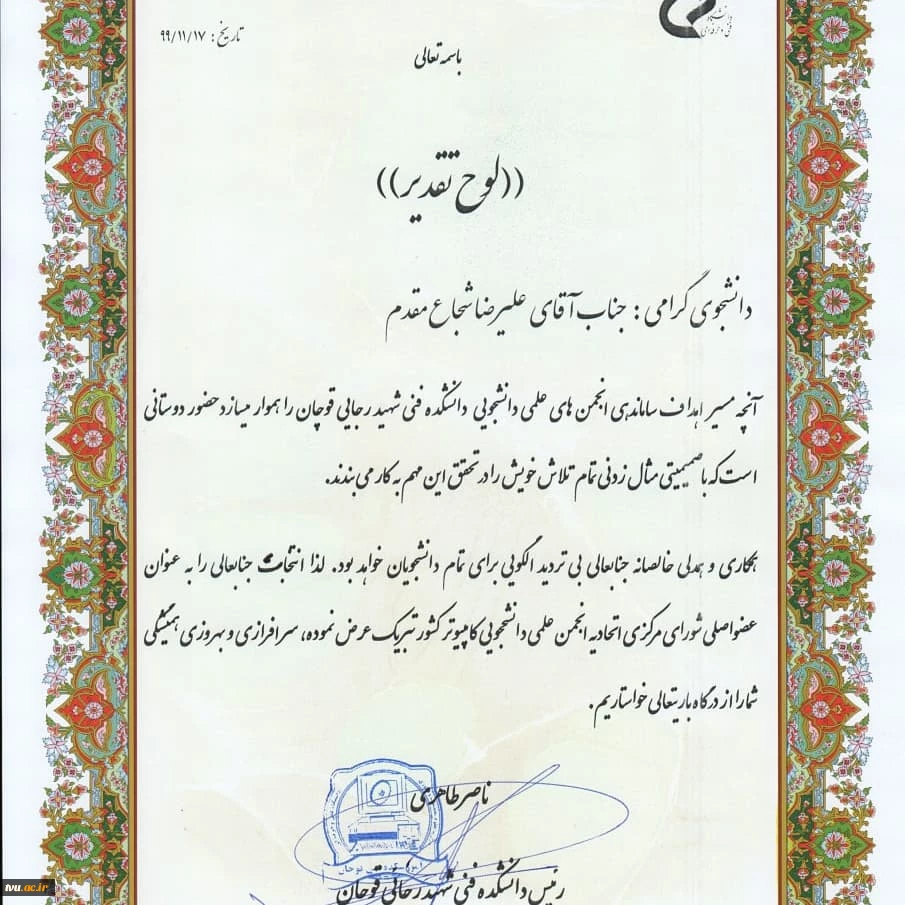 دانشگاه
فنی و حرفه‌ای
تاریخ: ۹۹/۱۱/۱۷
باسمه تعالی
((لوح تقدیر))
دانشجوی گرامی: جناب آقای علیرضا شجاع مقدم
آنچه مسیر اهداف ساماندهی انجمن های علمی دانشجویی دانشکده فنی شهید رجایی قوچان را هموار میسازد حضور دوستانی
است که با صمیمیتی مثال زدنی تمام تلاش خویش را در تحقق این مهم به کار می بندند.
همکاری و همدلی خالصانه جنابعالی بی تردید الگویی برای تمام دانشجویان خواهد بود. لذا انتخاب جنابعالی را به عنوان
عضو اصلی شورای مرکزی اتحادیه انجمن علمی دانشجویی کامپیوتر کشور تبریک عرض نموده، سرافرازی و بهروزی همیشگی
شما را از درگاه باریتعالی خواستاریم.
ناصر طاهری
رئیس دانشکده فنی شهید رجائی قوچان
tvu.ac.ir